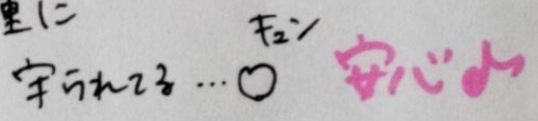 里に
守られてる…○
キュン
安心♪